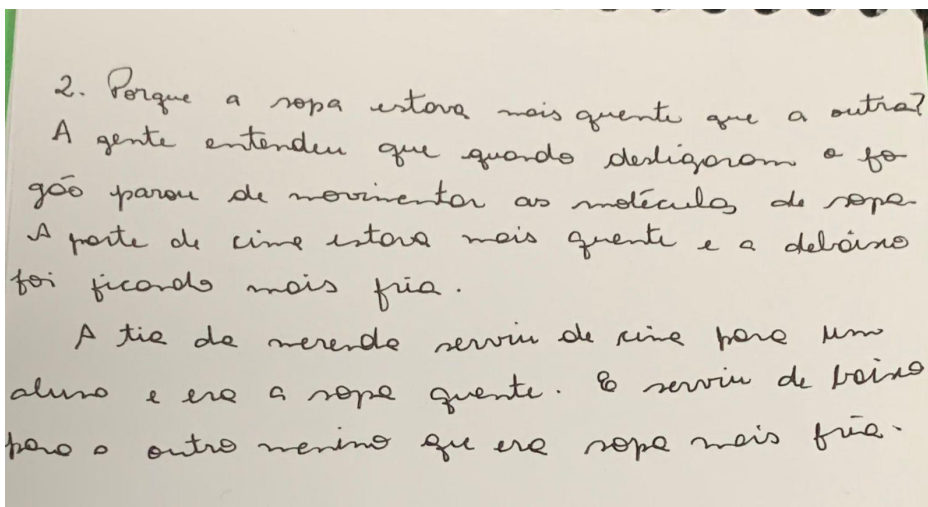 2. Porque a sopa estava mais quente que a outra?
A gente entendeu que quando desligaram o fo-
gão parou de movimentar as moléculas de sopa.
A parte de cima estava mais quente e a debaixo
foi ficando mais fria.
A tia da merenda serviu de cima para um
aluno e era a sopa quente. E serviu de baixo
para o outro menino que era sopa mais fria.